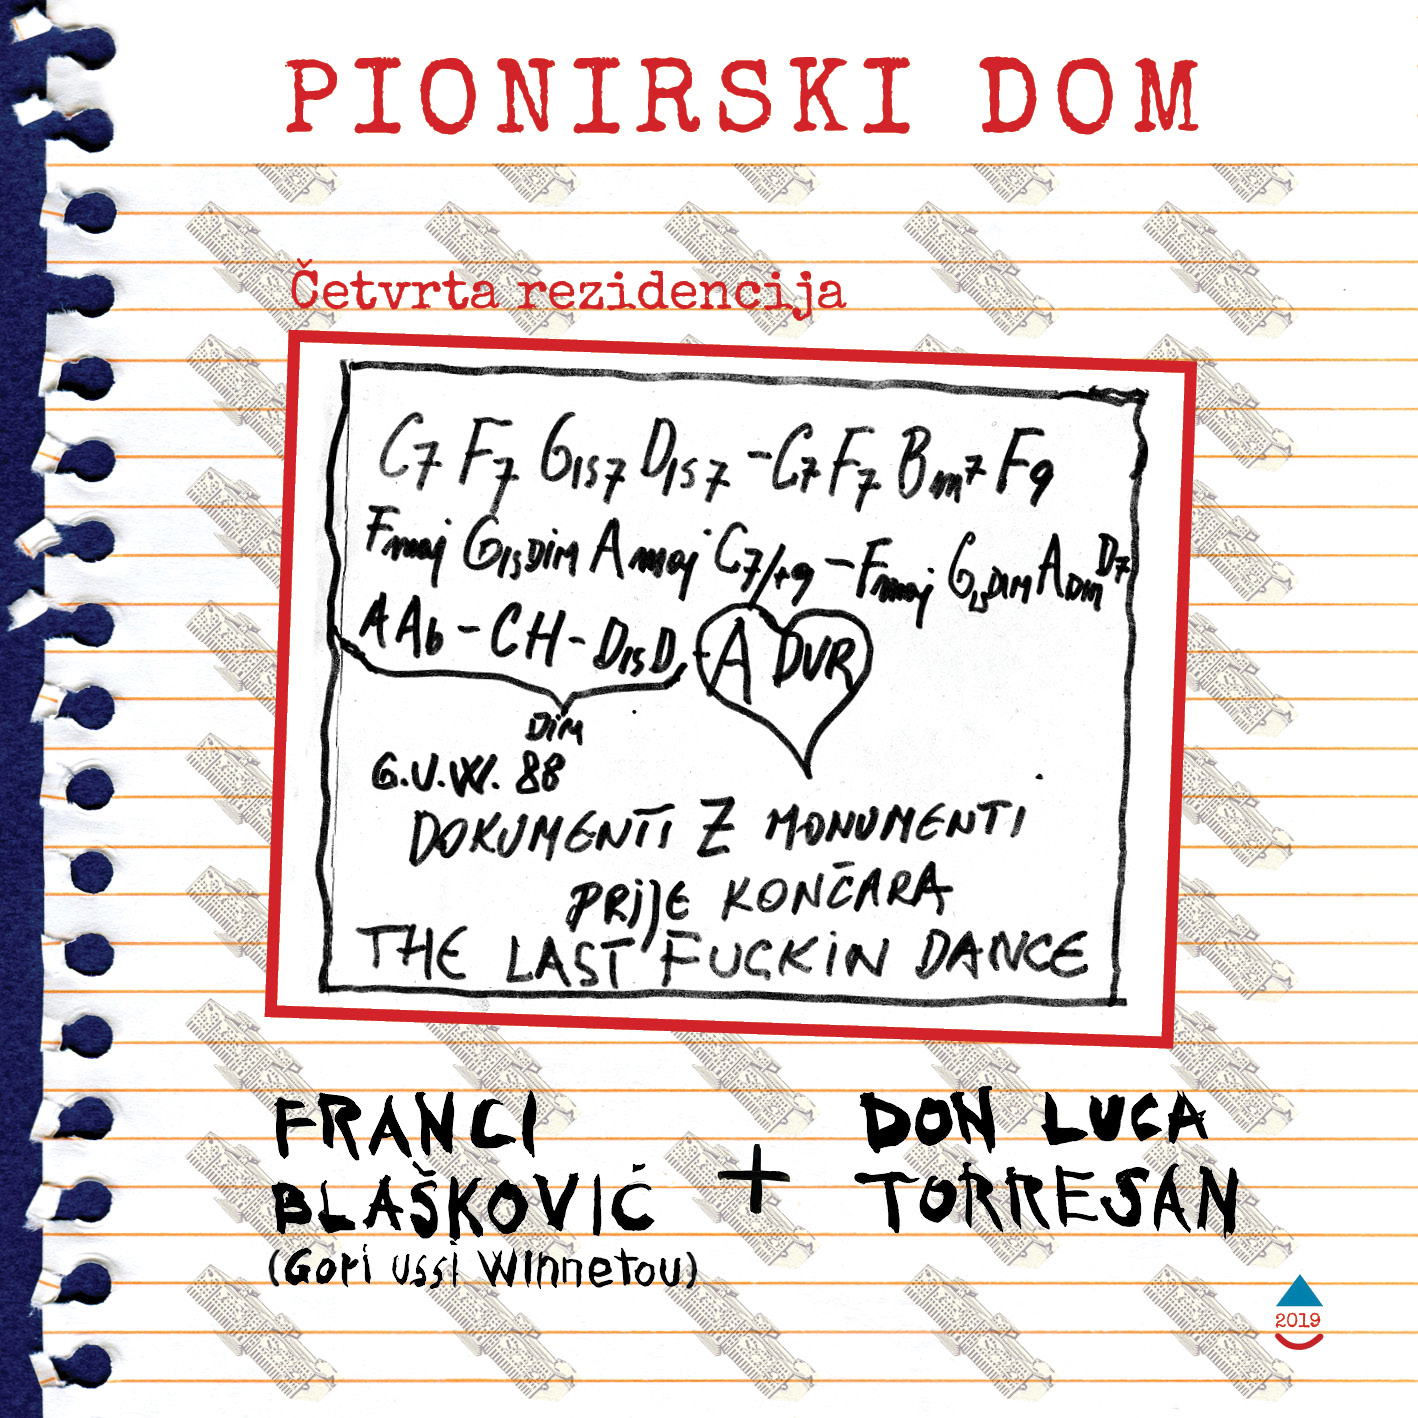 PIONIRSKI DOM
Četvrta rezidencija
C7 F7 Gis7 Dis7 - C7 F7 Bm7 F9
Fmaj GisDIM Amaj C7/+9 - Fmaj GisDIM ADIM D7
A Ab - CH - DisD - A DUR
DIM
G.U.W. 88
DOKUMENTI Z MONUMENTI
PRIJE KONČARA
THE LAST FUCKIN DANCE
FRANCI
BLAŠKOVIĆ
(Gori ussi Winnetou)
+
DON LUCA
TORRESAN
2019